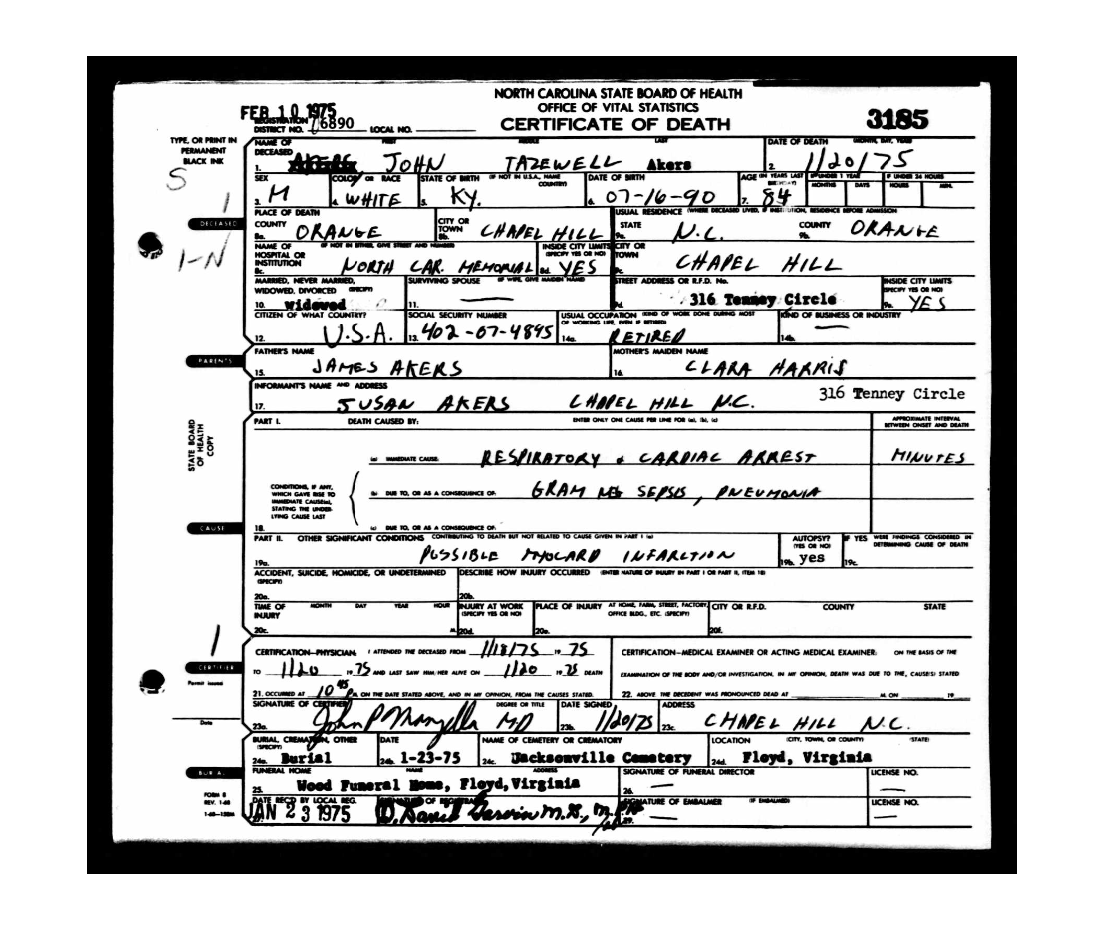 NORTH CAROLINA STATE BOARD OF HEALTH
OFFICE OF VITAL STATISTICS
CERTIFICATE OF DEATH
3185
FEB 10 1975
REGISTRATION DISTRICT NO. 6890 LOCAL NO.
TYPE, OR PRINT IN PERMANENT BLACK INK
S
1
1-N
NAME OF DECEASED FIRST MIDDLE LAST DATE OF DEATH (MONTH, DAY, YEAR)
1. JOHN TAZEWELL Akers 2. 1/20/75
SEX COLOR OR RACE STATE OF BIRTH (IF NOT IN U.S.A., NAME COUNTRY) DATE OF BIRTH AGE (IN YEARS LAST BIRTHDAY) IF UNDER 1 YEAR IF UNDER 24 HOURS
MONTHS DAYS HOURS MIN.
3. M 4. WHITE 5. KY. 6. 07-16-90 7. 84
DECEASED
PLACE OF DEATH USUAL RESIDENCE (WHERE DECEASED LIVED, IF INSTITUTION, RESIDENCE BEFORE ADMISSION)
COUNTY CITY OR TOWN STATE COUNTY
8a. ORANGE 8b. CHAPEL HILL 9a. N.C. 9b. ORANGE
NAME OF HOSPITAL OR INSTITUTION (IF NOT IN EITHER, GIVE STREET AND NUMBER) INSIDE CITY LIMITS (SPECIFY YES OR NO) CITY OR TOWN
8c. NORTH CAR. MEMORIAL 8d. YES 9c. CHAPEL HILL
MARRIED, NEVER MARRIED, WIDOWED, DIVORCED (SPECIFY) SURVIVING SPOUSE (IF WIFE, GIVE MAIDEN NAME) STREET ADDRESS OR R.F.D. No. INSIDE CITY LIMITS (SPECIFY YES OR NO)
10. Widowed 11. — 9d. 316 Tenney Circle 9e. YES
CITIZEN OF WHAT COUNTRY? SOCIAL SECURITY NUMBER USUAL OCCUPATION (KIND OF WORK DONE DURING MOST OF WORKING LIFE, EVEN IF RETIRED) KIND OF BUSINESS OR INDUSTRY
12. U.S.A. 13. 402-07-4895 14a. RETIRED 14b. —
PARENTS
FATHER'S NAME MOTHER'S MAIDEN NAME
15. JAMES AKERS 16. CLARA HARRIS
INFORMANT'S NAME AND ADDRESS
17. SUSAN AKERS CHAPEL HILL N.C. 316 Tenney Circle
STATE BOARD OF HEALTH COPY
PART I. DEATH CAUSED BY: ENTER ONLY ONE CAUSE PER LINE FOR (a), (b), (c) APPROXIMATE INTERVAL BETWEEN ONSET AND DEATH
(a) IMMEDIATE CAUSE RESPIRATORY & CARDIAC ARREST MINUTES
CONDITIONS, IF ANY, WHICH GAVE RISE TO IMMEDIATE CAUSE(a), STATING THE UNDERLYING CAUSE LAST
(b) DUE TO, OR AS A CONSEQUENCE OF: GRAM NEG SEPSIS, PNEUMONIA
CAUSE
18. (c) DUE TO, OR AS A CONSEQUENCE OF:
PART II. OTHER SIGNIFICANT CONDITIONS CONTRIBUTING TO DEATH BUT NOT RELATED TO CAUSE GIVEN IN PART I (a) AUTOPSY? (YES OR NO) IF YES WERE FINDINGS CONSIDERED IN DETERMINING CAUSE OF DEATH
19a. POSSIBLE MYOCARD INFARCTION 19b. yes 19c.
ACCIDENT, SUICIDE, HOMICIDE, OR UNDETERMINED (SPECIFY) DESCRIBE HOW INJURY OCCURRED (ENTER NATURE OF INJURY IN PART I OR PART II, ITEM 18)
20a. 20b.
TIME OF INJURY MONTH DAY YEAR HOUR INJURY AT WORK (SPECIFY YES OR NO) PLACE OF INJURY AT HOME, FARM, STREET, FACTORY, OFFICE BLDG., ETC. (SPECIFY) CITY OR R.F.D. COUNTY STATE
20c. M. 20d. 20e. 20f.
1
CERTIFIER
Permit issued
Date
CERTIFICATION—PHYSICIAN: I ATTENDED THE DECEASED FROM 1/18/75 19 75
TO 1/20 19 75 AND LAST SAW HIM/HER ALIVE ON 1/20 19 75 DEATH
21. OCCURRED AT 10 45 P. ON THE DATE STATED ABOVE, AND IN MY OPINION, FROM THE CAUSES STATED.
CERTIFICATION—MEDICAL EXAMINER OR ACTING MEDICAL EXAMINER: ON THE BASIS OF THE
EXAMINATION OF THE BODY AND/OR INVESTIGATION, IN MY OPINION, DEATH WAS DUE TO THE, CAUSE(S) STATED
22. ABOVE THE DECEDENT WAS PRONOUNCED DEAD AT M. ON 19
SIGNATURE OF CERTIFIER DEGREE OR TITLE DATE SIGNED ADDRESS
23a. John P MD 23b. 1/20/75 23c. CHAPEL HILL N.C.
BURIAL, CREMATION, OTHER (SPECIFY) DATE NAME OF CEMETERY OR CREMATORY LOCATION (CITY, TOWN, OR COUNTY) (STATE)
24a. Burial 24b. 1-23-75 24c. Jacksonville Cemetery 24d. Floyd, Virginia
BURIAL
FUNERAL HOME NAME ADDRESS SIGNATURE OF FUNERAL DIRECTOR LICENSE NO.
25. Wood Funeral Home, Floyd, Virginia 26. — —
FORM 8
REV. 1-68
DATE REC'D BY LOCAL REG. SIGNATURE OF REGISTRAR SIGNATURE OF EMBALMER (IF EMBALMED) LICENSE NO.
JAN 23 1975 O. David Garvin M.D., M. 29. — —